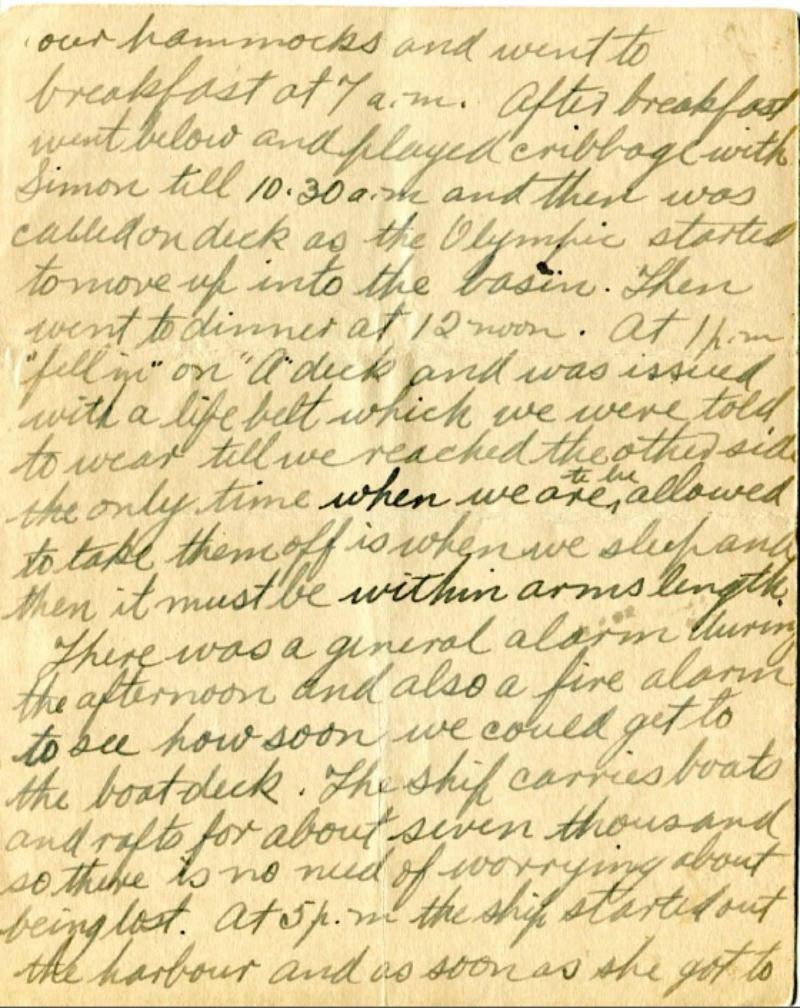 our hammocks and went to
breakfast at 7 a.m. After breakfast
went below and played cribbage with
Simon till 10.30 a.m and then was
called on deck as the Olympic started
to move up into the basin. Then
went to dinner at 12 noon. At 1 p.m
"fell in" on "A" deck and was issued
with a life belt which we were told
to wear till we reached the other side
to be
the only time when we are, allowed
to take them off is when we sleep and
then it must be within arms length.
There was a general alarm during
the afternoon and also a fire alarm
to see how soon we could get to
the boat deck. The ship carries boats
and rafts for about seven thousand
so there is no need of worrying about
being lost. At 5 p.m the ship started out
the harbour and as soon as she got to